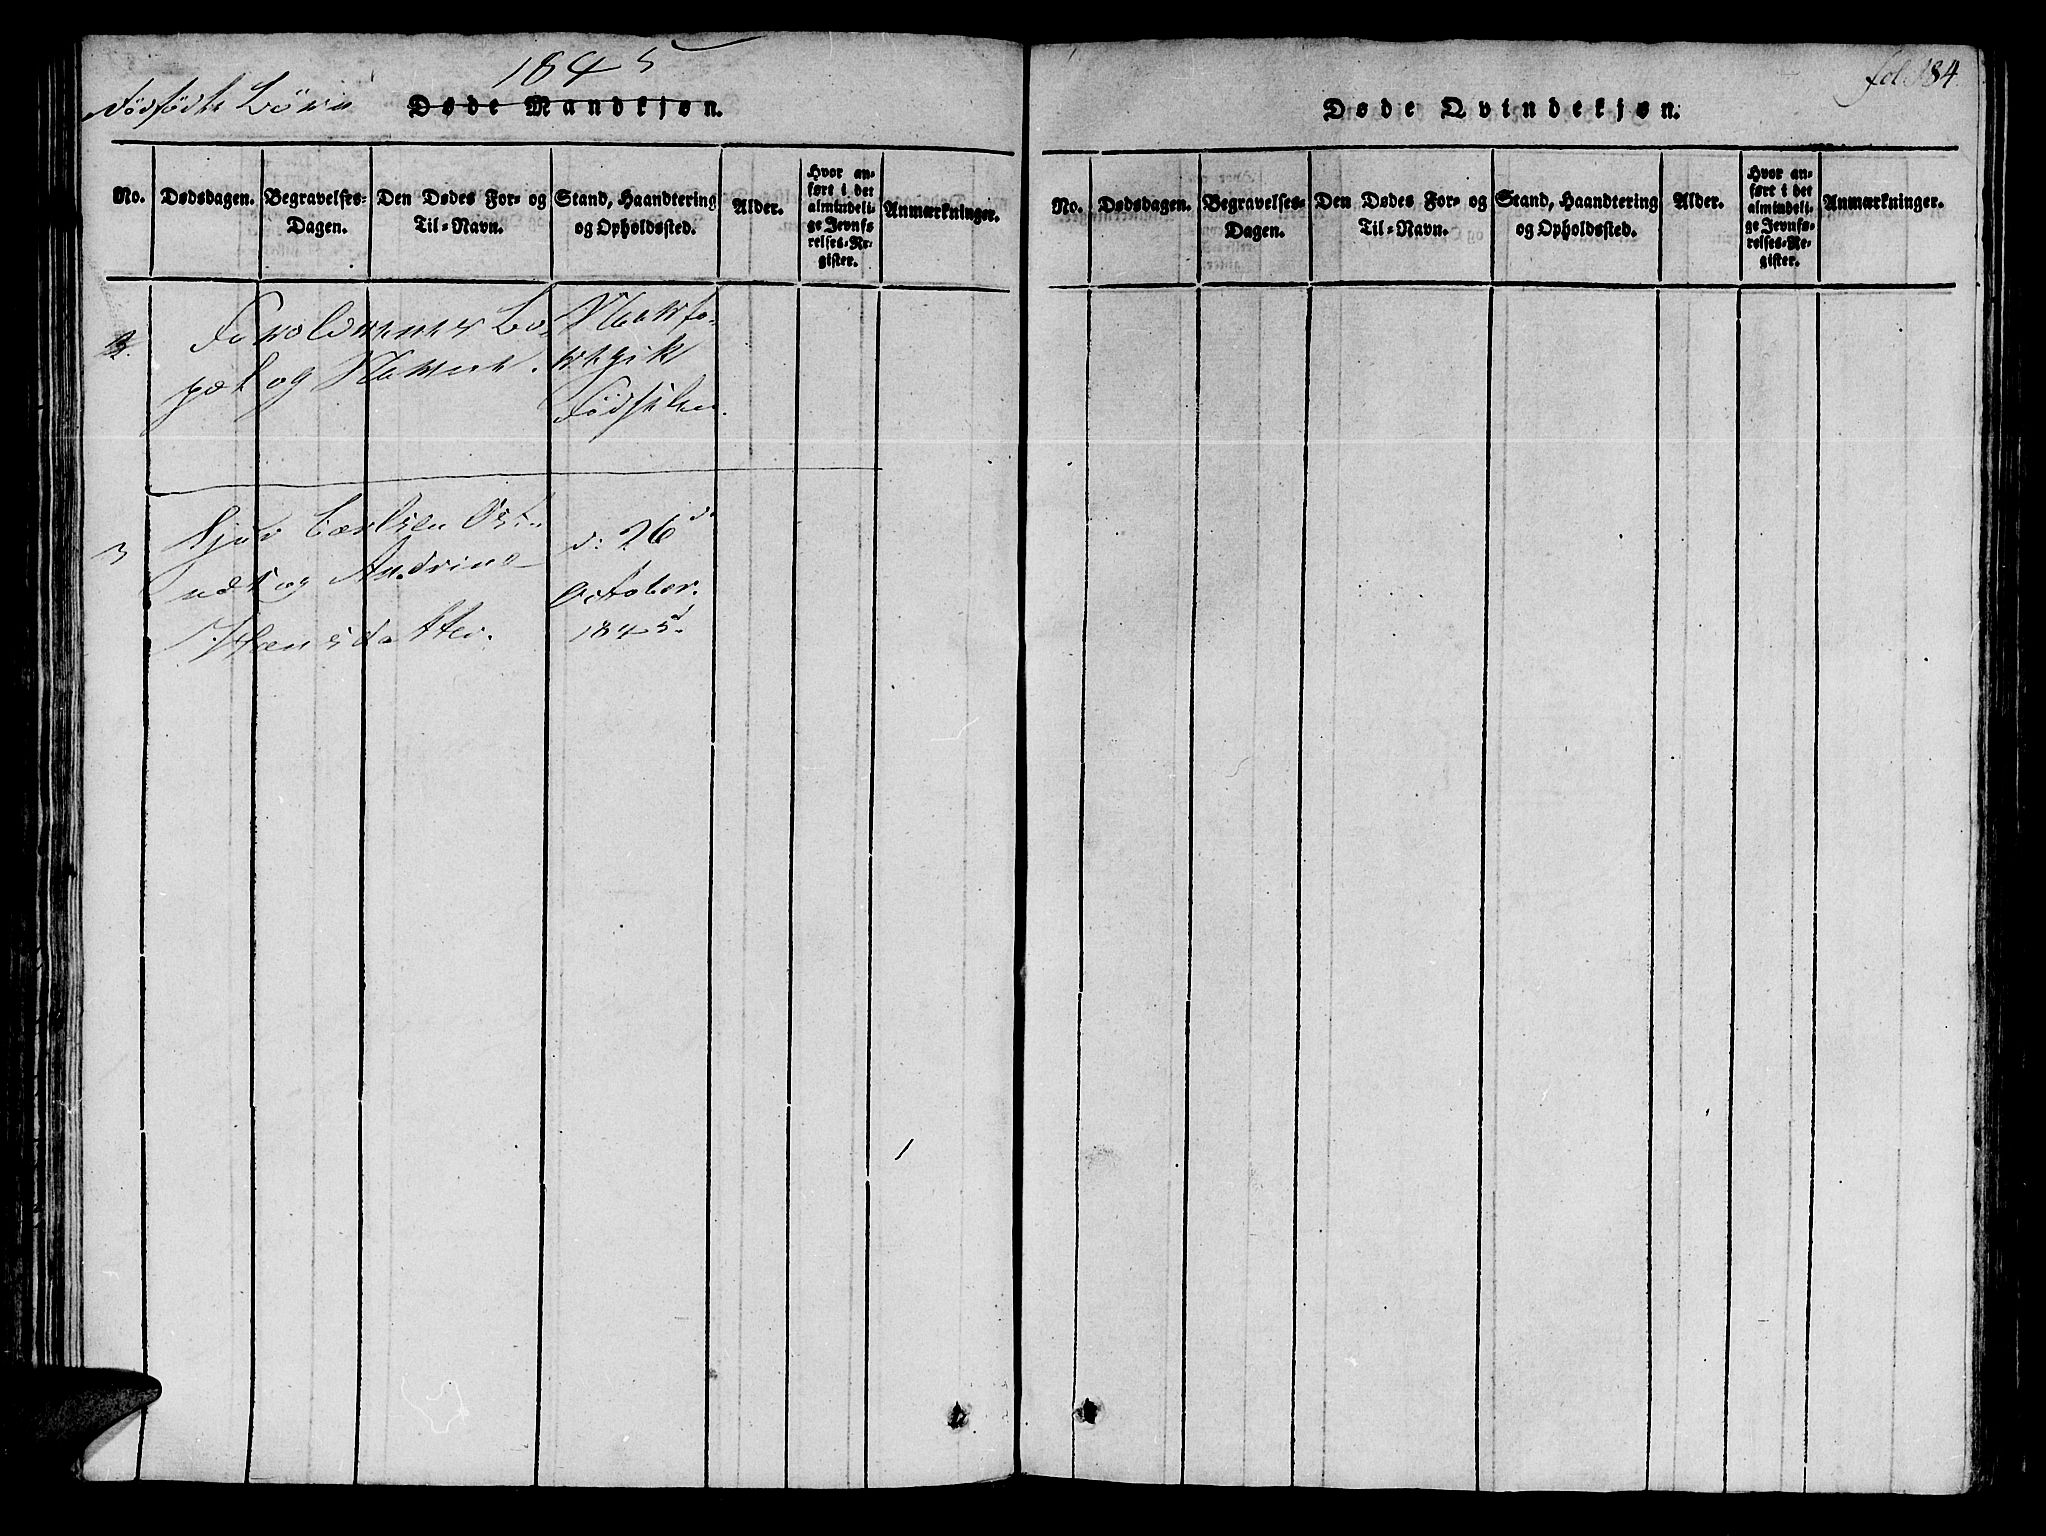 1845
Dødfødte Børn
Døde Mandkjøn.
No. Dødsdagen. Begravelses-Dagen. Den Dødes For- og Til-Navn. Stand, Haandtering og Opholdssted. Alder. Hvor anført i det almindelige Jevnførelses-Register. Anmærkninger.
Forældrenes Bo- Naar fo-
pæl og Navne. regik
Fødselen.
3 Carlsen d: 26d
og Andrine October
Hansdatter. 1845.
fol. 184
Døde Qvindekjøn.
No. Dødsdagen. Begravelses-Dagen. Den Dødes For- og Til-Navn. Stand, Haandtering og Opholdssted. Alder. Hvor anført i det almindelige Jevnførelses-Register. Anmærkninger.